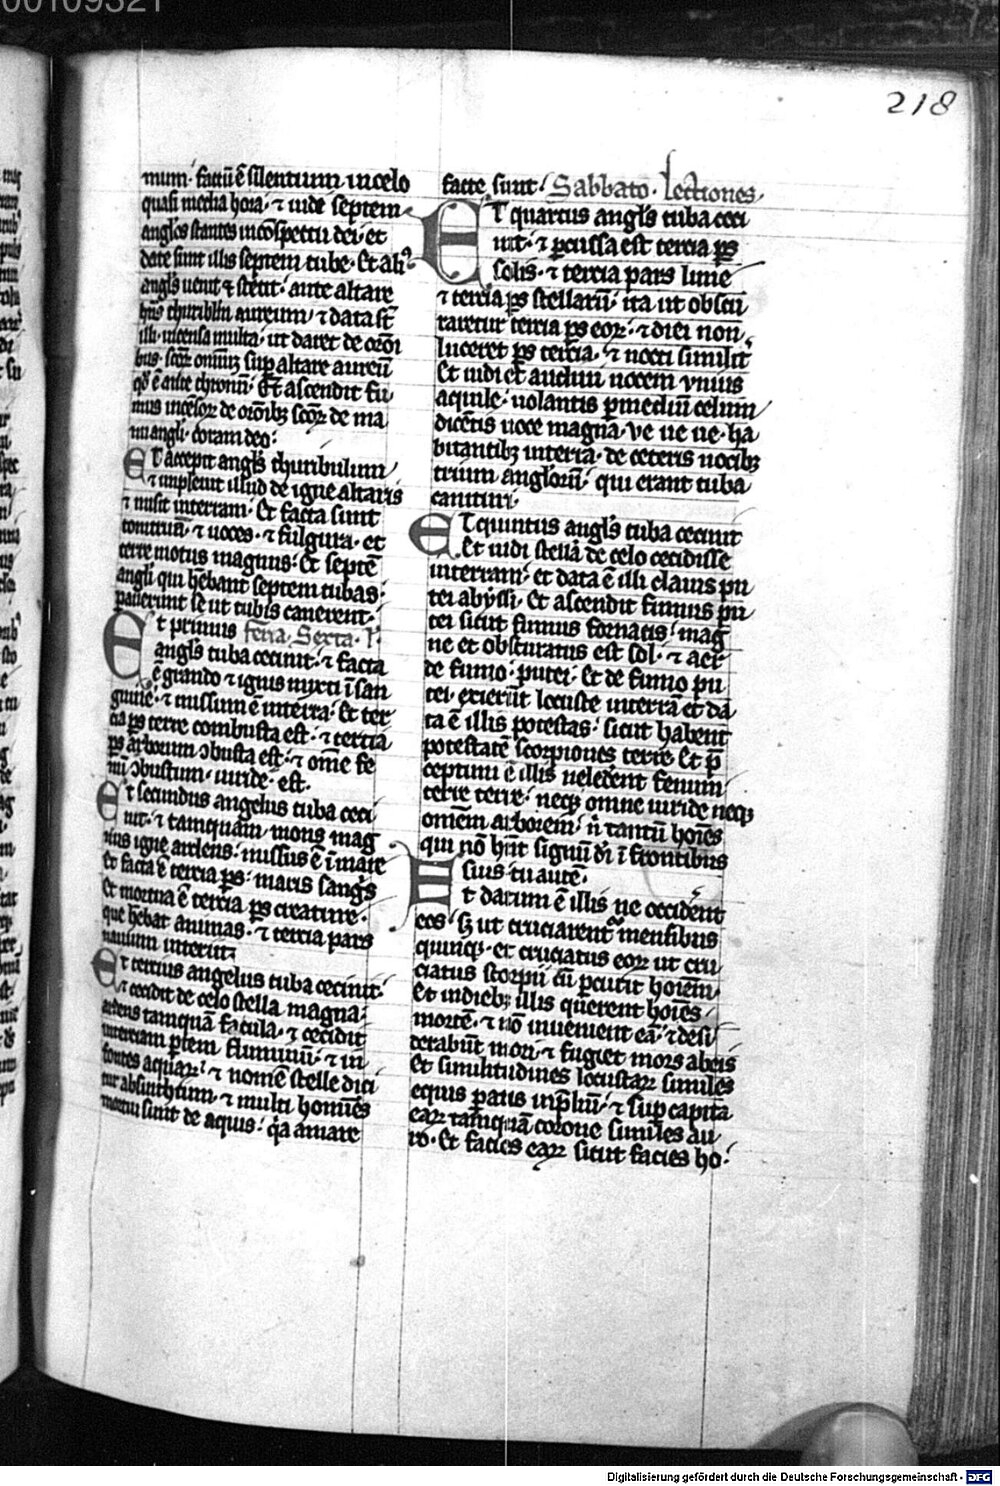 00109321
218
mum· factū ē silentium in celo
quasi media hora· ⁊ uidi septem
angl'os stantes in ɔspectu dei· et
date sunt illis septem tube· Et ali⁹
angl's uenit ⁊ stetit· ante altare
hn̄s thuriblm̄ aureum· ⁊ data st̄
illi· incensa multa· ut daret de orōi
bus· scōꝝ omniū sup altare aureū
qd̓ ē ante thronū· Et ascendit fu
mus incēsoꝝ de orōibꝫ scōꝝ de ma
nu angli· coram deo·
Et accepit angl's thuribulum
⁊ impleuit illud de igne altaris
⁊ misit in terram· Et facta sunt
tonitruā· ⁊ uoces· ⁊ fulgura· et
terre motus magnus· Et septē
angl'i qui hēbant septem tubas·
pauerunt se ut tubis canerent·
Et primus feria. Sexta. l'
angl's tuba cecinit· ⁊ facta
ē grando ⁊ ignis mixti ī san
guine· ⁊ missum ē in terrā· Et ter
cia ps terre combusta est· ⁊ tertia
ps arborum ɔbusta est· ⁊ omē fe
nū ɔbustum· uiride· est·
Et secundus angelus tuba ceci
nit· ⁊ tamquam mons mag
nus igne ardens· missus ē ī mare
Et facta ē tercia ps· maris sangˢs
Et mortua ē tercia ps creature·
que hēbat animas· ⁊ tercia pars
nauium interiit·
Et tercius angelus tuba cecinit·
⁊ cecidit de celo stella magna·
ardens tamquā facula· ⁊ cecidit
in terciam ptem fluminū· ⁊ in
fontes aquaꝝ· ⁊ nomē stelle dici
tur absinthium ⁊ multi homiēs
mortui sunt de aquis· qa amare
facte sunt· Sabbato. Lectiones.
Et quartus angl's tuba ceci
nit· ⁊ pcussa est tercia ps
solis· ⁊ tercia pars lune
⁊ tercia ps stellarū· ita ut obscu
raretur tercia ps eoꝝ· ⁊ diei non
luceret ps tercia· ⁊ nocti similit
Et uidi et audiui uocem vnius
aquile· uolantis p mediū celum
dicētis uoce magna· ve ue ue· ha
bitantibꝫ in terra· de ceteris uocibꝫ
trium angl'orū· qui erant tuba
canituri·
Et quintus angl's tuba cecinit
Et uidi stellā de celo cecidisse
in terram· et data ē illi clauis pu
tei abyssi· Et ascendit fumus pu
tei sicut fumus fornacis· mag
ne et obscuratus est sol· ⁊ aer
de fumo· putei· Et de fumo pu
tei· exierūt locuste in terrā et da
ta ē illis potestas· sicut habent
potestatē scorpiones terre Et p̄
ceptum ē illis ne ledent fenum
terre terre· neqꝫ omne uiride neqꝫ
omēm arborem· n̄ tantū hoīes
qui nō hn̄t signū di ī frontibus
suis· tu autē·
Et datum ē illis ne occident
eos· sꝫ ut cruciarent mensibus
quinqꝫ· et cruciatus eoꝝ ut cru
ciatus scorpii cū pcutit hoiēm·
Et in diebꝫ illis querent hoiēs
mortē· ⁊ nō inuenient eā· ⁊ desi
derabūt mori ⁊ fugiet mors ab eis
Et similitudines locustaꝝ similes
equis patis in plīū· ⁊ sup capita
eaꝝ tamquā corone similes au
ro· Et facies eaꝝ sicut facies ho·
Digitalisierung gefördert durch die Deutsche Forschungsgemeinschaft - DFG